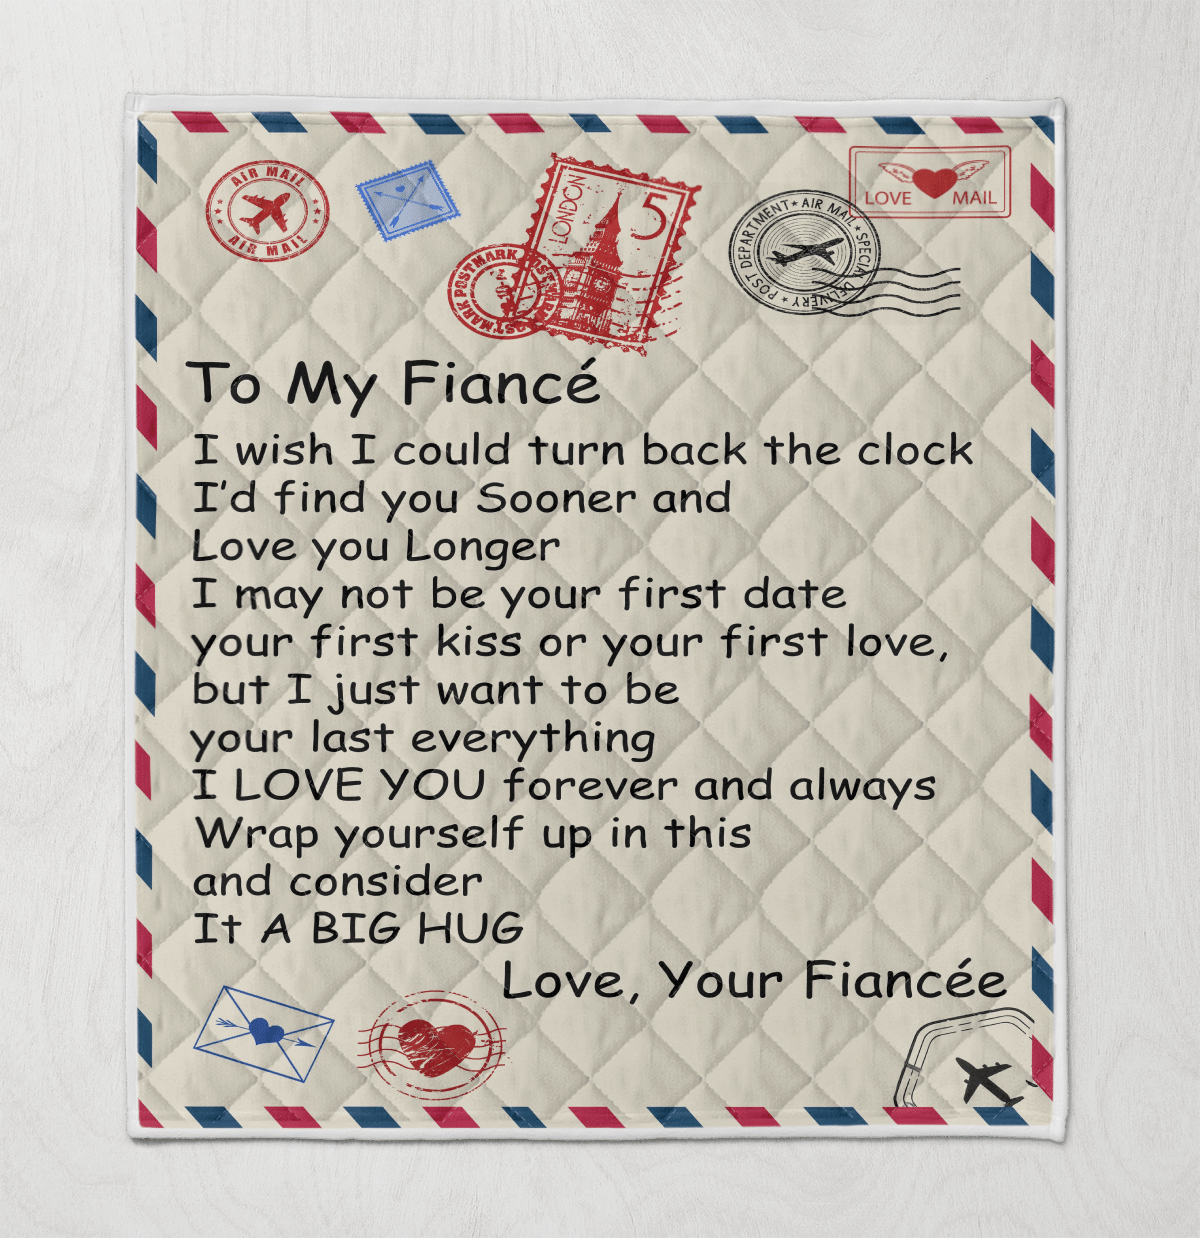 AIR MAIL
AIR MAIL
LONDON
5
POSTMARK POSTMARK
POSTMARK
POST DEPARTMENT ★ AIR MAIL ★ SPECIAL DELIVERY ★
LOVE MAIL
To My Fiancé
I wish I could turn back the clock
I'd find you Sooner and
Love you Longer
I may not be your first date
your first kiss or your first love,
but I just want to be
your last everything
I LOVE YOU forever and always
Wrap yourself up in this
and consider
It A BIG HUG
Love, Your Fiancée